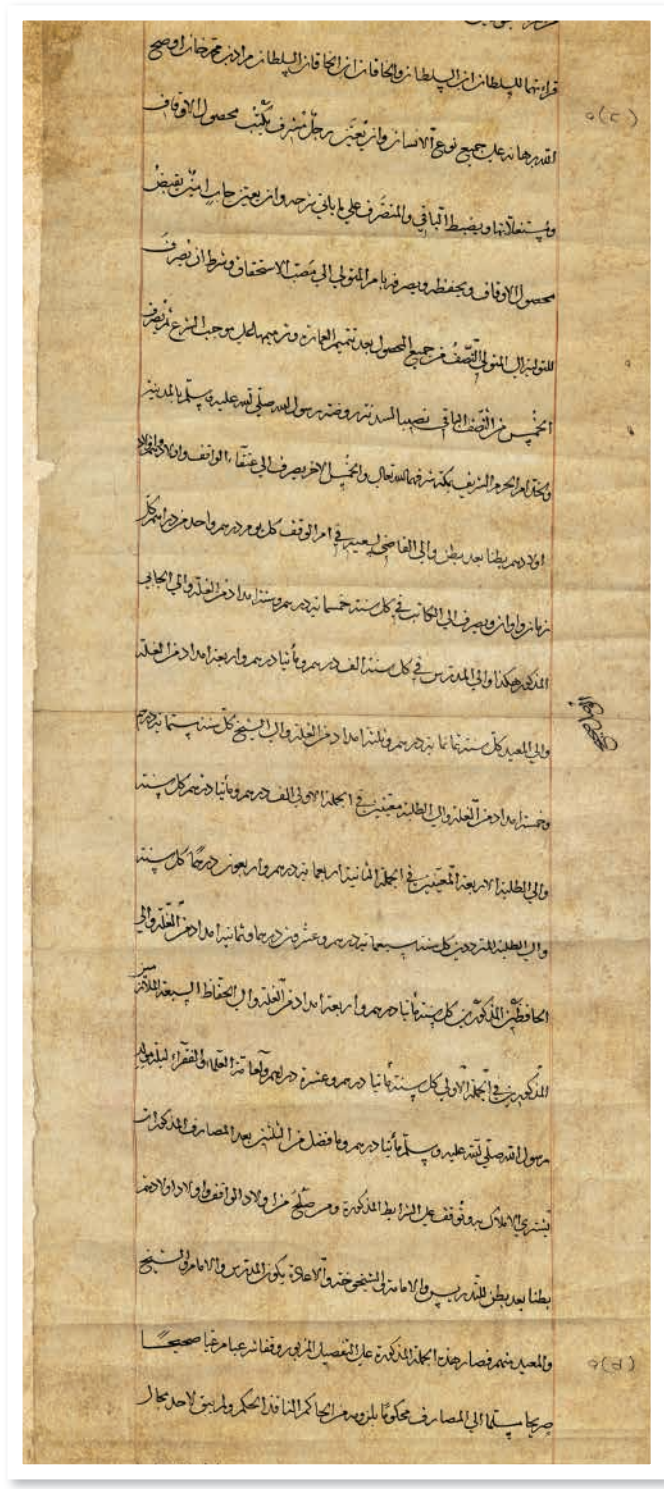 قراءتهما للسلطان ابن السلطان والخاقان ابن الخاقان السلطان مراد بن محمد خان اوضح
الله برهانه على جميع نوع الانسان وان يعين رجل مشرف يكتب محصول الاوقاف
ومستغلاتها ويضبط الباقي والمتصرف على ما ياتي شرحه وان يعين جاب امين يقبض
محصول الاوقاف ويحفظه ويصرفه بامر المتولي الى مصب الاستحقاق وشرط ان يصرف
للتولية الى المتولي النصف من جميع المحصول بعد تتميم العمارة وترميمها على موجب الشرع ثم يصرف
الخمس من النصف الباقي نصيبا لسدنة روضة رسول الله صلى الله عليه وسلم بالمدينة
ولخدام الحرم الشريف بمكة شرفها الله تعالى والخمس الاخر يصرف الى عتقاء الواقف واولادهم واولاد
اولادهم بطنا بعد بطن والى القاضي لسعيه في امر الوقف كل يوم درهم واحد من دراهم كل
زمان واوان ويصرف الى الكاتب في كل سنة خمسمائة درهم وستة امداد من الغلة والى الجابي
المذكور هكذا والى المدرس في كل سنة الف درهم ومأتيا درهم واربعة امداد من الغلة
والى المعيد كل سنة ثمانمائة درهم وثلثة امداد من الغلة والى الشيخ كل سنة ستمائة درهم
وخمسة امداد من الغلة والى الطلبة معينين في الجملة الاولى الف درهم ومأتيا درهم كل سنة
والى الطلبة الاربعة المعينين في الجملة الثانية اربعمائة درهم واربعون درهما كل سنة
والى الطلبة المترددين كل سنة سبعمائة درهم وعشرون درهما وثمانية امداد من الغلة والى
الحافظين المذكورين كل سنة مأتيا درهم واربعة امداد من الغلة والى الحفاظ السبعة الملازمين
المذكورين في الجملة الاولى كل سنة مأتيا درهم وعشرة دراهم ولعامة العلماء والفقراء ليلة مولد
رسول الله صلى الله عليه وسلم مأتيا درهم وما فضل من الثلثين بعد المصارف المذكورات
يشترى الاملاك به وتوقف على الشرايط المذكورة ومن صلح من اولاد الواقف واولاد اولادهم
بطنا بعد بطن للتدريس والامامة والشيخوخة والاعادة يكون المدرس والامام والشيخ
والمعيد منهم فصار هذه الجملة المذكورة على التفصيل المزبور وقفا شرعيا مرعيا صحيحا
صريحا مسلما الى المصارف محكوما بلزومه من الحاكم النافذ الحكم ولم يبق لاحد مجال